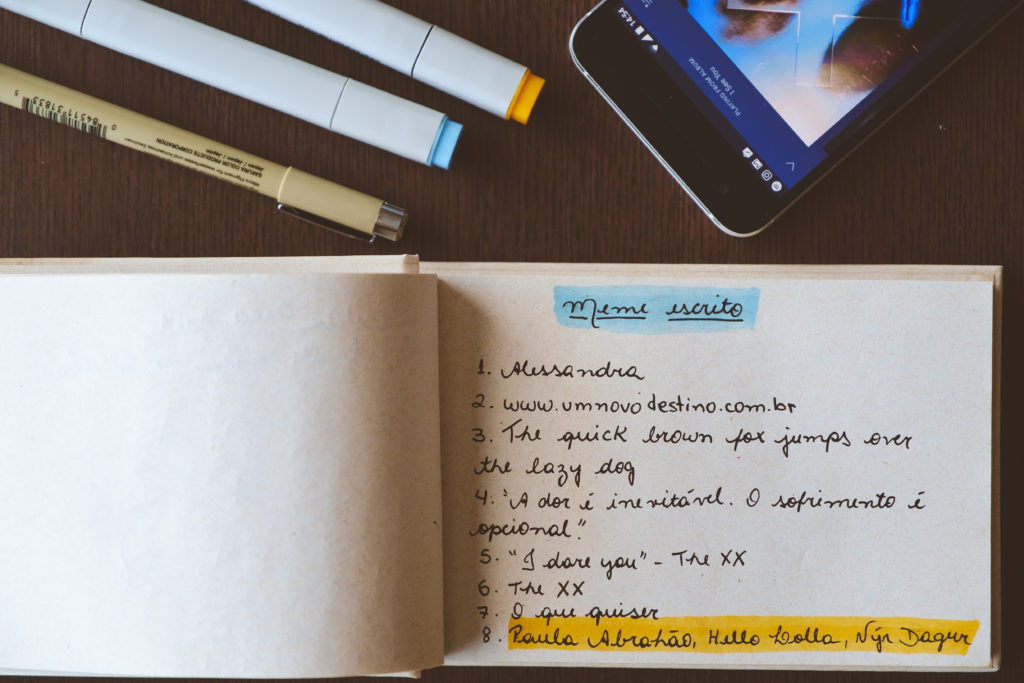 14:54
PLAYING FROM ALBUM
I See You
0 84511 31833 5
SAKURA COLOR PRODUCTS CORPORATION
Japan / Japan
Meme escrito
1. Alessandra
2. www.umnovodestino.com.br
3. The quick brown fox jumps over
the lazy dog
4. "A dor é inevitável. O sofrimento é
opcional."
5. "I dare you" - The XX
6. The XX
7. O que quiser
8. Paula Abrahão, Hello Lolla, Nýr Dagur